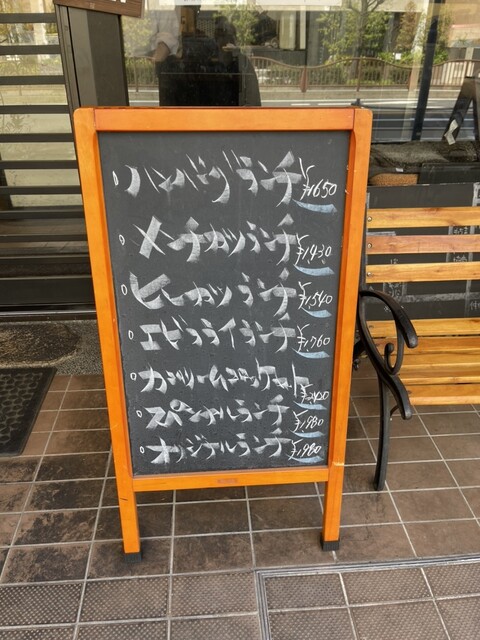 ○ハンバーグランチ ¥1650
○メンチカツランチ ¥1430
○ヒレカツランチ ¥1,540
○エビフライランチ ¥1,760
○カニクリームコロッケ
○スペシャルランチ ¥1,980
○オリジナルランチ ¥1,980